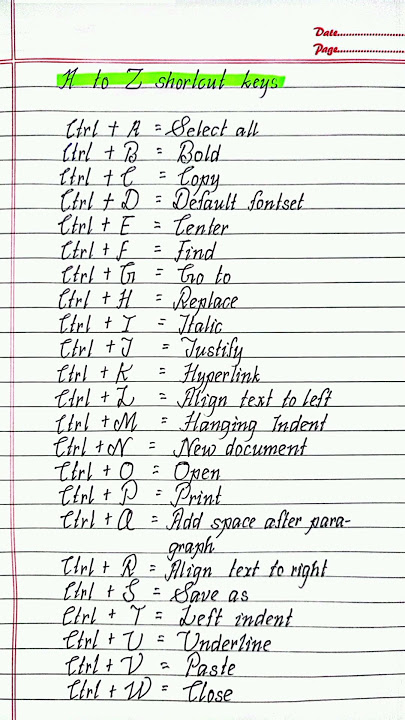 Date....................
Page....................
A to Z shortcut keys
Ctrl + A = Select all
Ctrl + B = Bold
Ctrl + C = Copy
Ctrl + D = Default fontset
Ctrl + E = Center
Ctrl + F = Find
Ctrl + G = Go to
Ctrl + H = Replace
Ctrl + I = Italic
Ctrl + J = Justify
Ctrl + K = Hyperlink
Ctrl + L = Align text to left
Ctrl + M = Hanging Indent
Ctrl + N = New document
Ctrl + O = Open
Ctrl + P = Print
Ctrl + Q = Add space after para-
graph
Ctrl + R = Align text to right
Ctrl + S = Save as
Ctrl + T = Left indent
Ctrl + U = Underline
Ctrl + V = Paste
Ctrl + W = Close